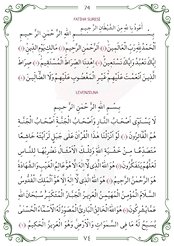 74
FATİHA SURESİ
اَعُوذُ بِاللّٰهِ مِنَ الشَّيْطَانِ الرَّجِيمِ
بِسْمِ اللّٰهِ الرَّحْمٰنِ الرَّحِيمِ
اَلْحَمْدُ لِلّٰهِ رَبِّ الْعَالَمِينَ اَلرَّحْمٰنِ الرَّحِيمِ مَالِكِ يَوْمِ الدِّينِ
اِيَّاكَ نَعْبُدُ وَاِيَّاكَ نَسْتَعِينُ اِهْدِنَا الصِّرَاطَ الْمُسْتَقِيمَ صِرَاطَ
الَّذِينَ اَنْعَمْتَ عَلَيْهِمْ غَيْرِ الْمَغْضُوبِ عَلَيْهِمْ وَلَا الضَّالِّينَ
LEVENZELNA
بِسْمِ اللّٰهِ الرَّحْمٰنِ الرَّحِيمِ
لَا يَسْتَوِى اَصْحَابُ النَّارِ وَاَصْحَابُ الْجَنَّةِ اَصْحَابُ الْجَنَّةِ
هُمُ الْفَائِزُونَ لَوْ اَنْزَلْنَا هٰذَا الْقُرْاٰنَ عَلٰى جَبَلٍ لَرَاَيْتَهُ خَاشِعًا
مُتَصَدِّعًا مِنْ خَشْيَةِ اللّٰهِ وَتِلْكَ الْاَمْثَالُ نَضْرِبُهَا لِلنَّاسِ
لَعَلَّهُمْ يَتَفَكَّرُونَ هُوَ اللّٰهُ الَّذِى لَا اِلٰهَ اِلَّا هُوَ عَالِمُ الْغَيْبِ وَالشَّهَادَةِ
هُوَ الرَّحْمٰنُ الرَّحِيمُ هُوَ اللّٰهُ الَّذِى لَا اِلٰهَ اِلَّا هُوَ اَلْمَلِكُ الْقُدُّوسُ
السَّلَامُ الْمُؤْمِنُ الْمُهَيْمِنُ الْعَزِيزُ الْجَبَّارُ الْمُتَكَبِّرُ سُبْحَانَ اللّٰهِ
عَمَّا يُشْرِكُونَ هُوَ اللّٰهُ الْخَالِقُ الْبَارِئُ الْمُصَوِّرُ لَهُ الْاَسْمَاءُ الْحُسْنٰى
يُسَبِّحُ لَهُ مَا فِى السَّمٰوَاتِ وَالْاَرْضِ وَهُوَ الْعَزِيزُ الْحَكِيمُ
٧٤